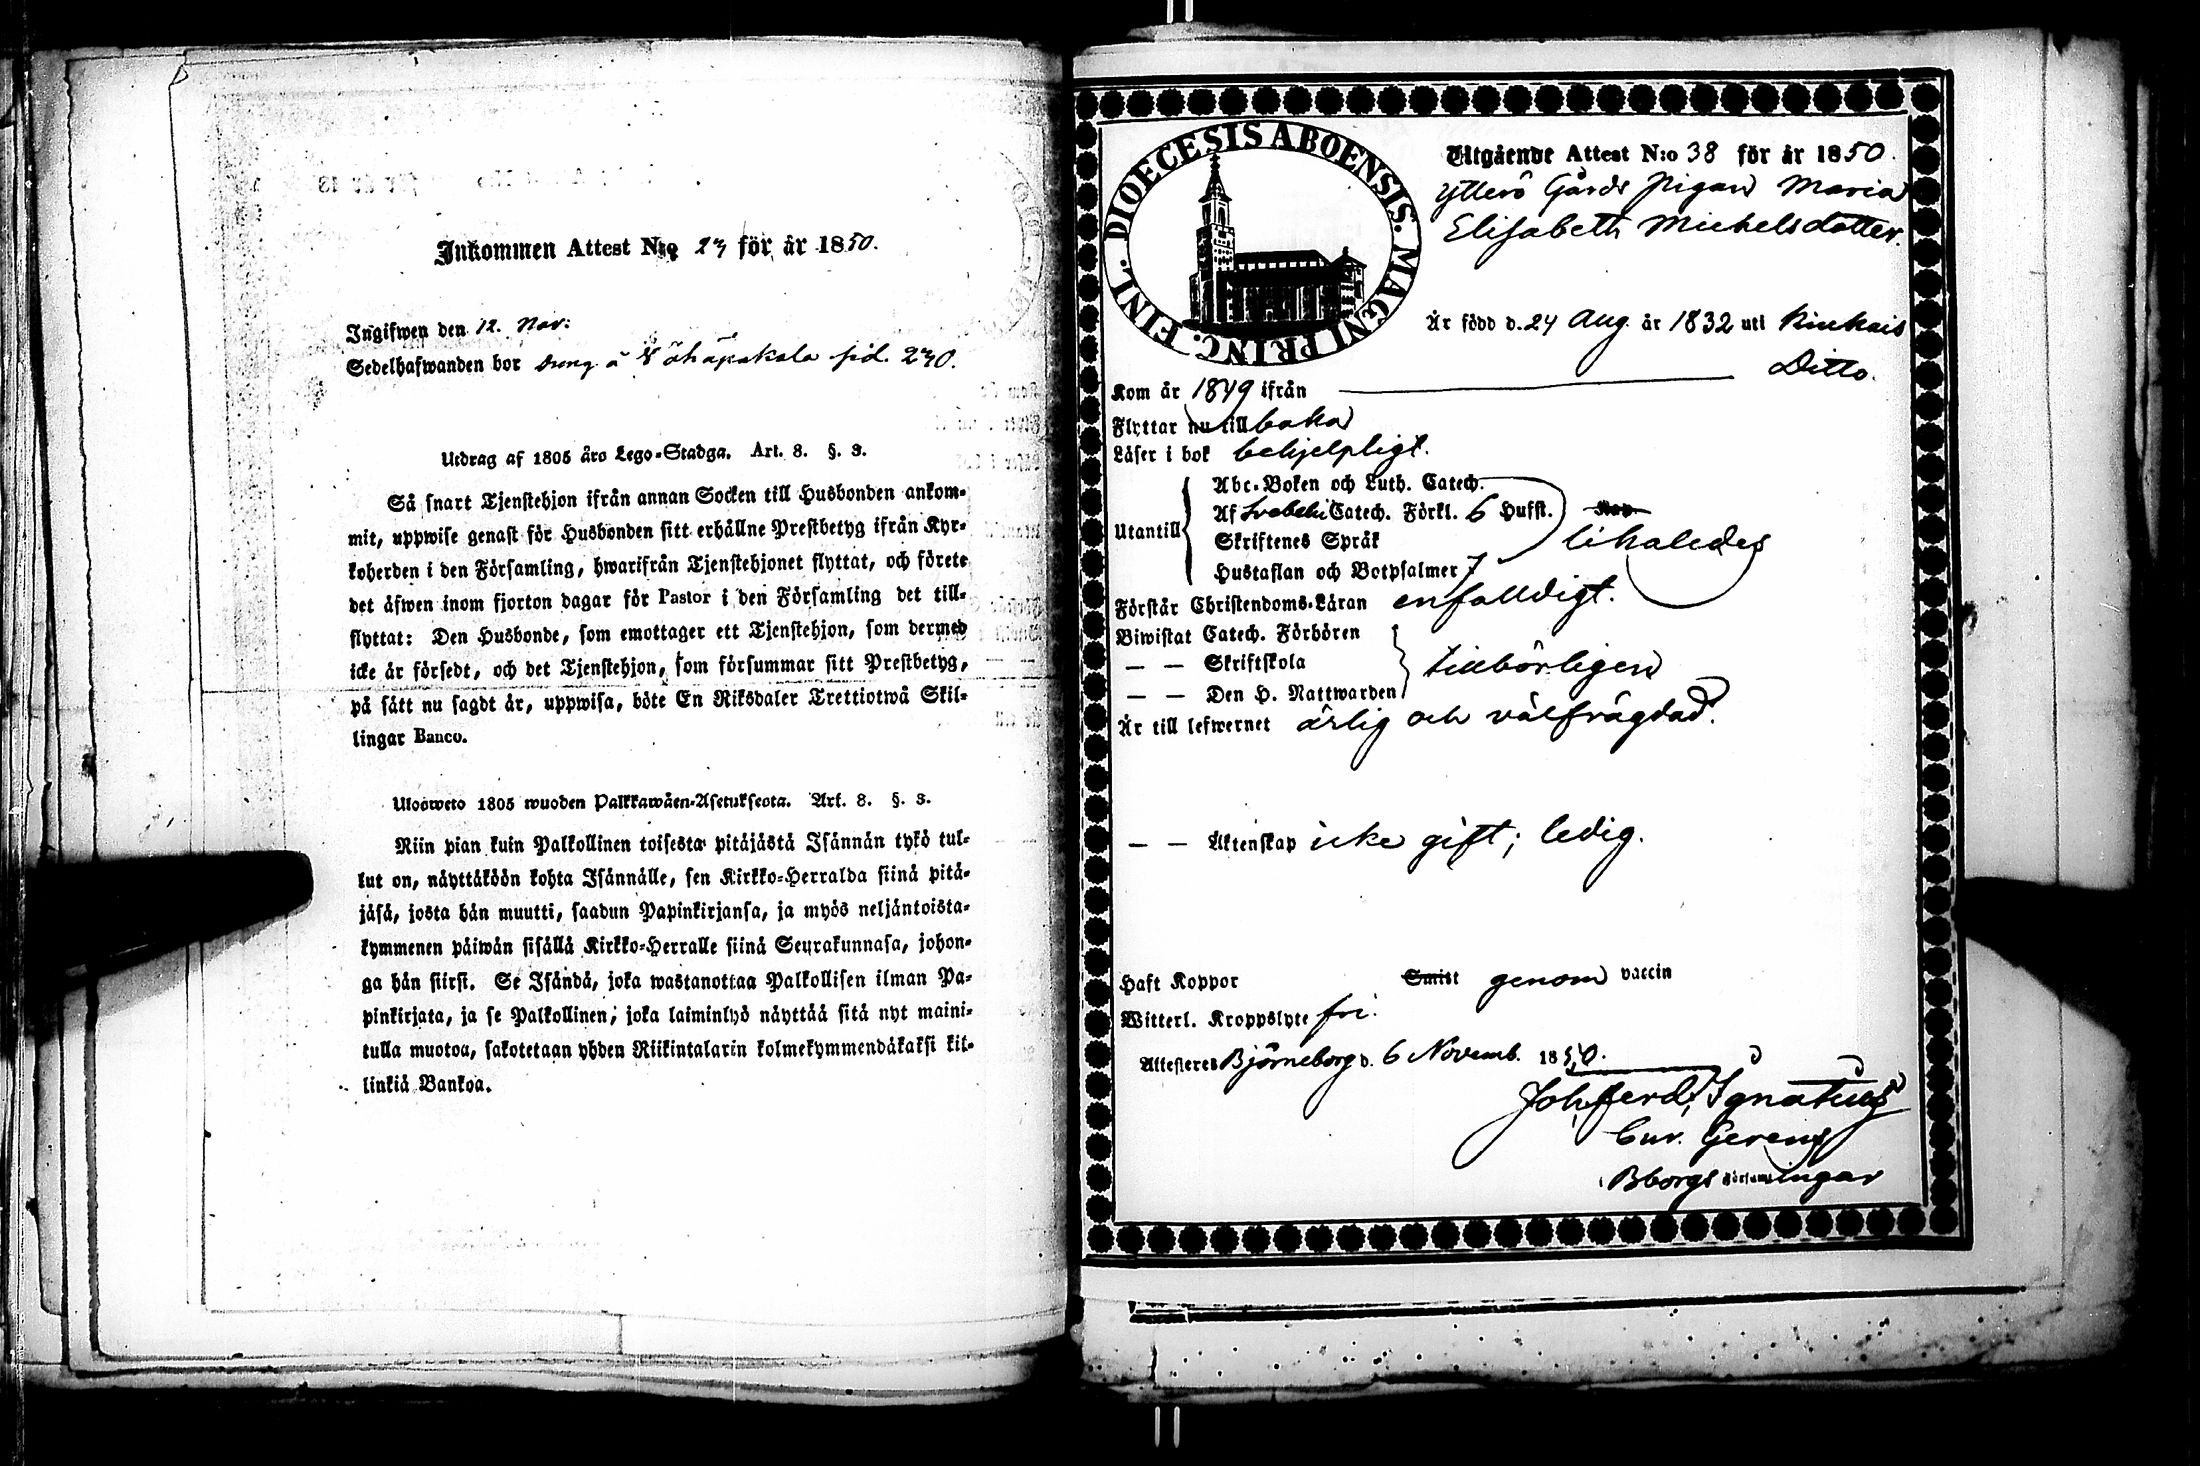 Inkommen Attest N:o 23 för år 1850.
Ingifwen den 12. Nov:
Sedelhafwanden bor dräng å Vähäpakala sid. 230.
Utdrag af 1805 års Lego-Stadga. Art. 8. §. 3.
Så snart Tjenstehjon ifrån annan Socken till Husbonden ankom-
mit, uppwise genast för Husbonden sitt erhållne Prestbetyg ifrån Kyr-
koherden i den Församling, hwarifrån Tjenstehjonet flyttat, och förete
det äfwen inom fjorton dagar för Pastor i den Församling det till-
flyttat: Den Husbonde, som emottager ett Tjenstehjon, som dermed
icke är försedt, och det Tjenstehjon, som försummar sitt Prestbetyg,
på sätt nu sagdt är, uppwisa, böte En Riksdaler Trettiotwå Skil-
lingar Banco.
Ulosweto 1805 wuoden Palkkawäen-Asetuksesta. Art. 8. §. 3.
Niin pian kuin Palkollinen toisesta pitäjästä Isännän tykö tul-
lut on, näyttäköön kohta Isännälle, sen Kirkko-Herralda siinä pitä-
jäsä, josta hän muutti, saadun Papinkirjansa, ja myös neljäntoista-
kymmenen päiwän sisällä Kirkko-Herralle siinä Seurakunnasa, johon-
ga hän siirsi. Se Isändä, joka wastanottaa Palkollisen ilman Pa-
pinkirjata, ja se Palkollinen, joka laiminlyö näyttää sitä nyt maini-
tulla muotoa, sakotetaan yhden Riikintalarin kolmekymmendäkaksi kil-
linkiä Bankoa.
DIOECESIS ABOENSIS. MAGNI PRINC. FINL.
Utgående Attest N:o 38 för år 1850.
Ytterö Gårds pigan Maria
Elisabeth Michelsdotter.
Är född d. 24 Aug. år 1832 uti Kiukais
Kom år 1849 ifrån Ditto.
Flyttar nu tillbaka
Läser i bok behjelpligt.
Utantill
Abc-Boken och Luth. Catech.
Af Svebelii Catech. Förkl. 6 Hufst.
Skriftenes Språk likaledes
Hustaflan och Botpsalmer 7
Förstår Christendoms-Läran enfalldigt.
Biwistat Catech. Förhören
— — Skriftskola tillbörligen
— — Den H. Nattwarden
Är till lefwernet ärlig och välfrägdad.
— — Äktenskap icke gift; ledig.
Haft Koppor Smitt genom vaccin
Witterl. Kroppslyte fri.
Attesteres Björneborg d. 6 Novemb. 1850.
Joh. Ferd. Ignatius
Cur. Gerens
i Bborgs Församlingar